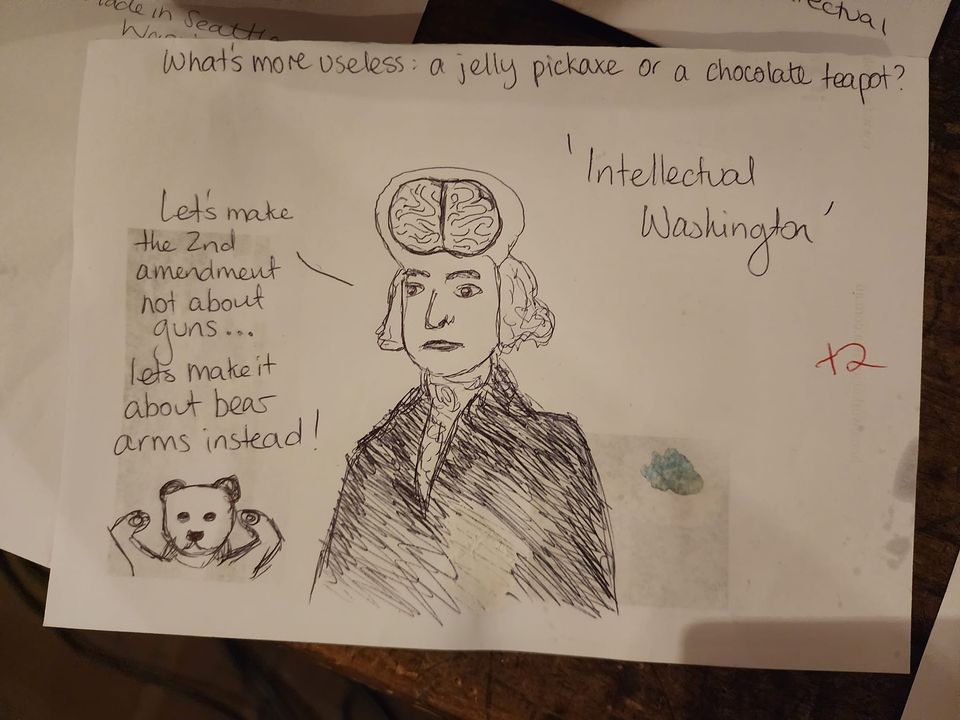 Made in Seattle
ectual
What's more useless: a jelly pickaxe or a chocolate teapot?
'Intellectual
Washington'
Let's make
the 2nd
amendment
not about
guns...
lets make it
about bear
arms instead!
+2